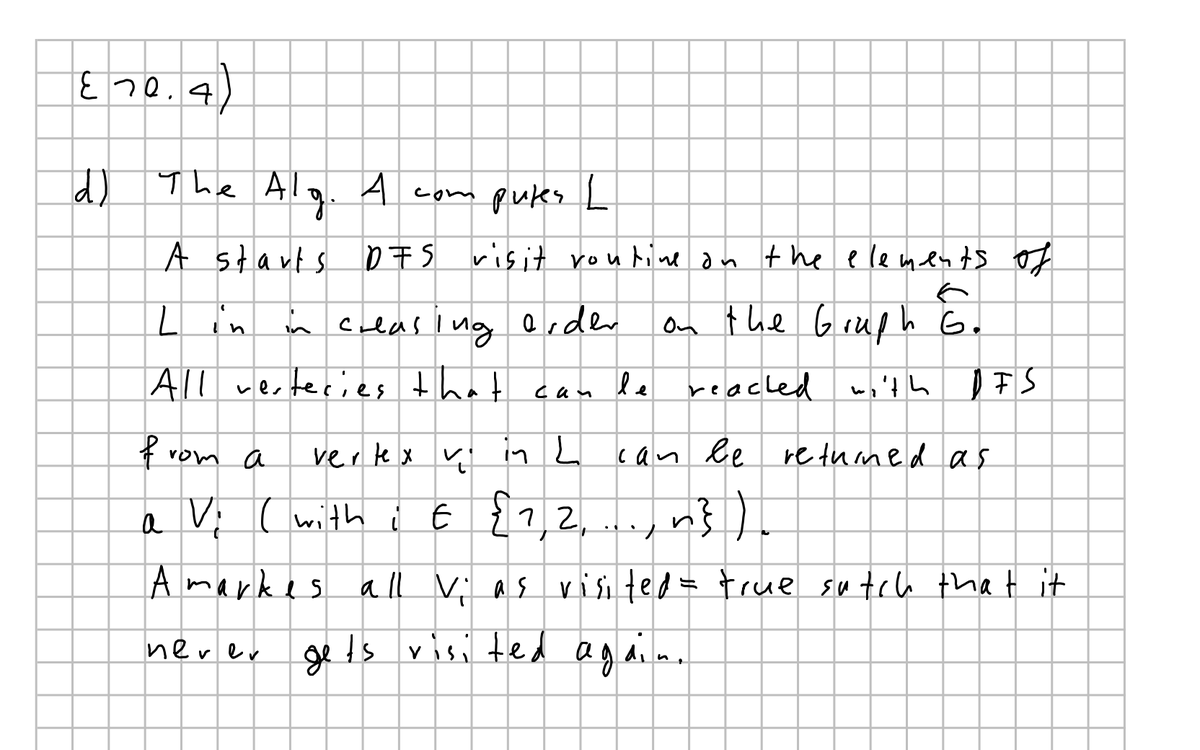 E 10.4)
d) The Alg. A computes L
A starts DFS visit routine on the elements of
L in increasing order on the Graph G⃖.
All vertecies that can be reached with DFS
from a vertex vᵢ in L can be returned as
a Vᵢ (with i ∈ {1,2, ..., n}).
A markes all Vᵢ as visited = true sutch that it
never gets visited again.